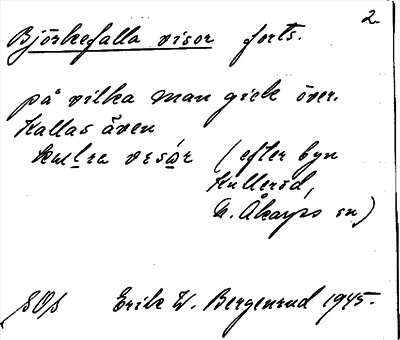 2.
Björkefalla visor forts.
på vilka man gick över.
Kallas även
kullra vesår (efter byn
Kulleröd,
N. Åkarps sn)
SOS Erik W. Bergenrud 1945.